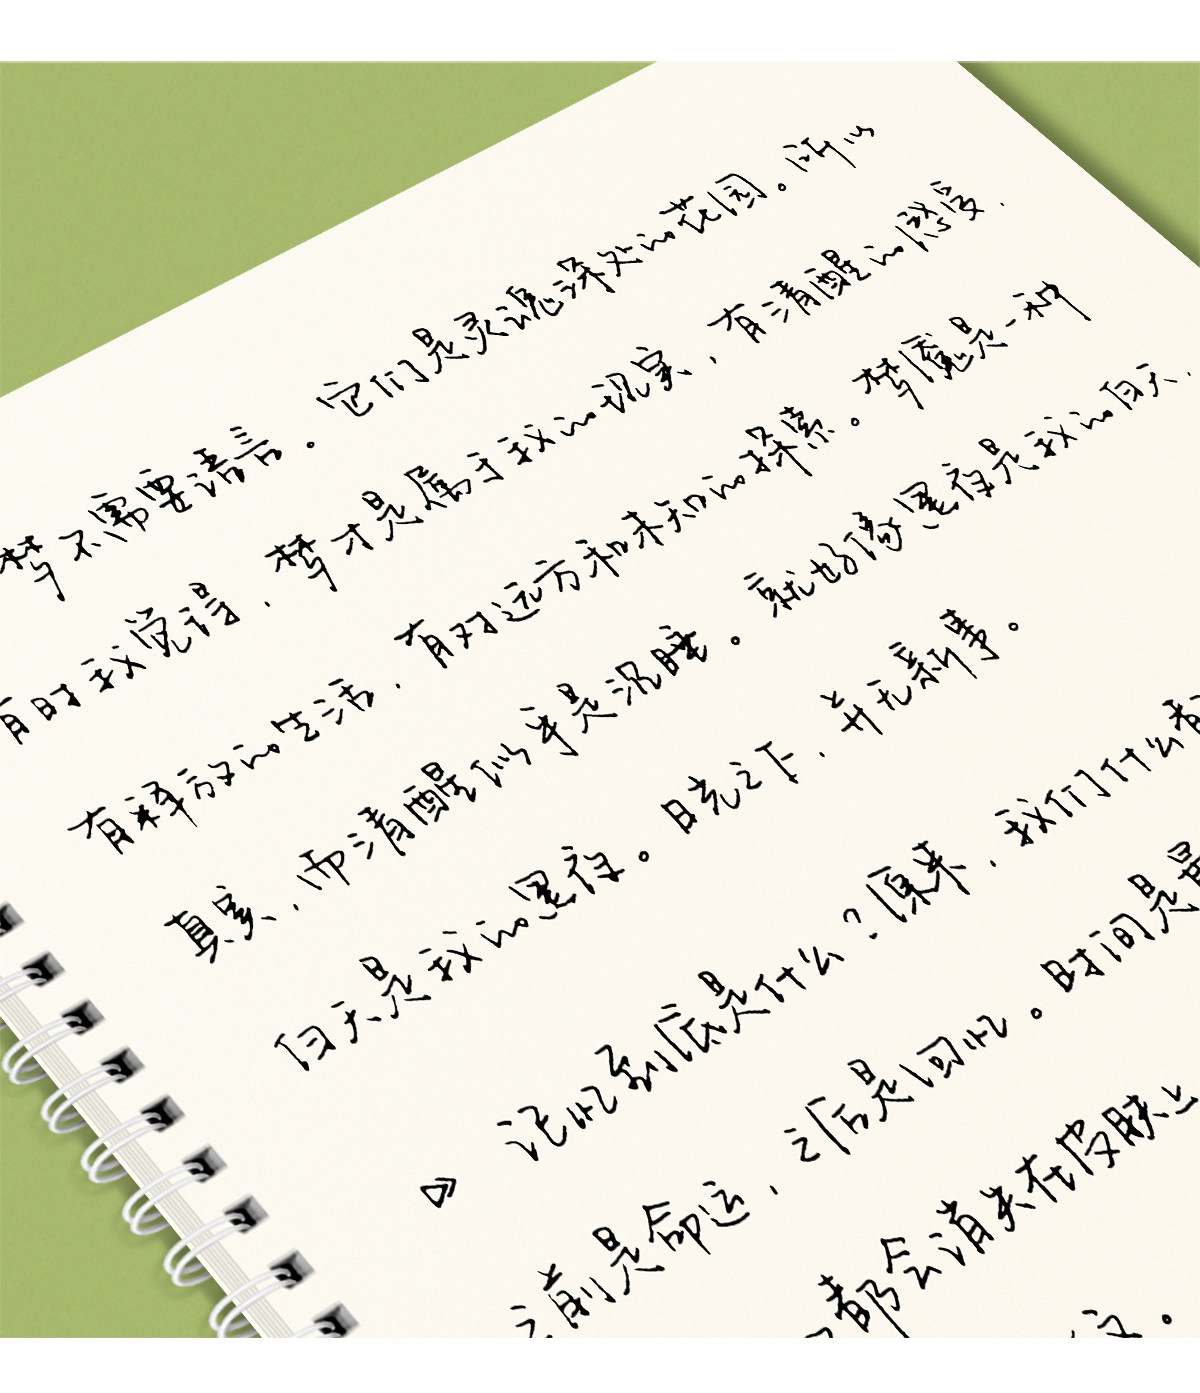 梦不需要语言。它们是灵魂深处的花园。所以
有时我觉得,梦才是属于我的现实,有清醒的感受,
有释放的生活,有对远方和未知的探索。梦魇是一种
真实,而清醒似乎是沉睡。就好像黑夜是我的白天,
白天是我的黑夜。日光之下,并无新事。
记忆到底是什么?原来,我们什么都
之前是命运,之后是回忆。时间是最
都会消失在皮肤上